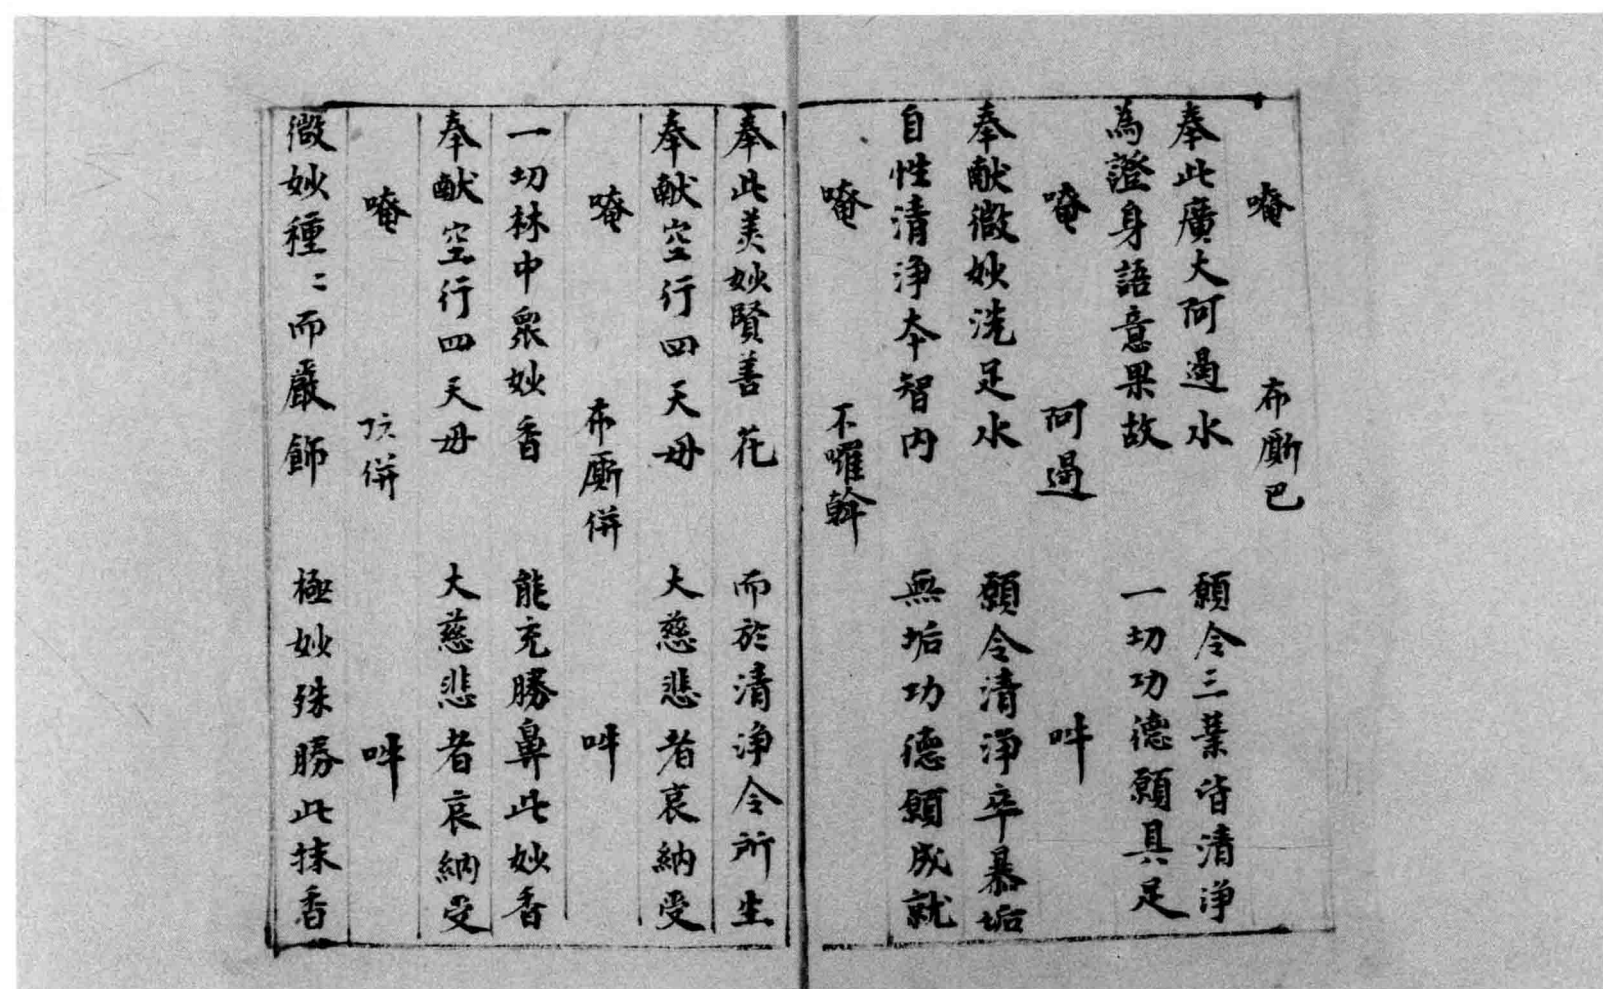 唵 布廝巴
奉此廣大阿遏水 願令三業皆清淨
為證身語意果故 一切功德願具足
唵 阿遏 吽
奉献微妙洗足水 願令清淨卒暴垢
自性清淨本智内 無垢功德願成就
唵 不囉斡
奉此美妙賢善花 而於清淨令所生
奉献空行四天母 大慈悲者哀納受
唵 布廝併 吽
一切林中衆妙香 能充勝鼻此妙香
奉献空行四天母 大慈悲者哀納受
唵 併 吽
微妙種〻而嚴飾 極妙殊勝此抹香